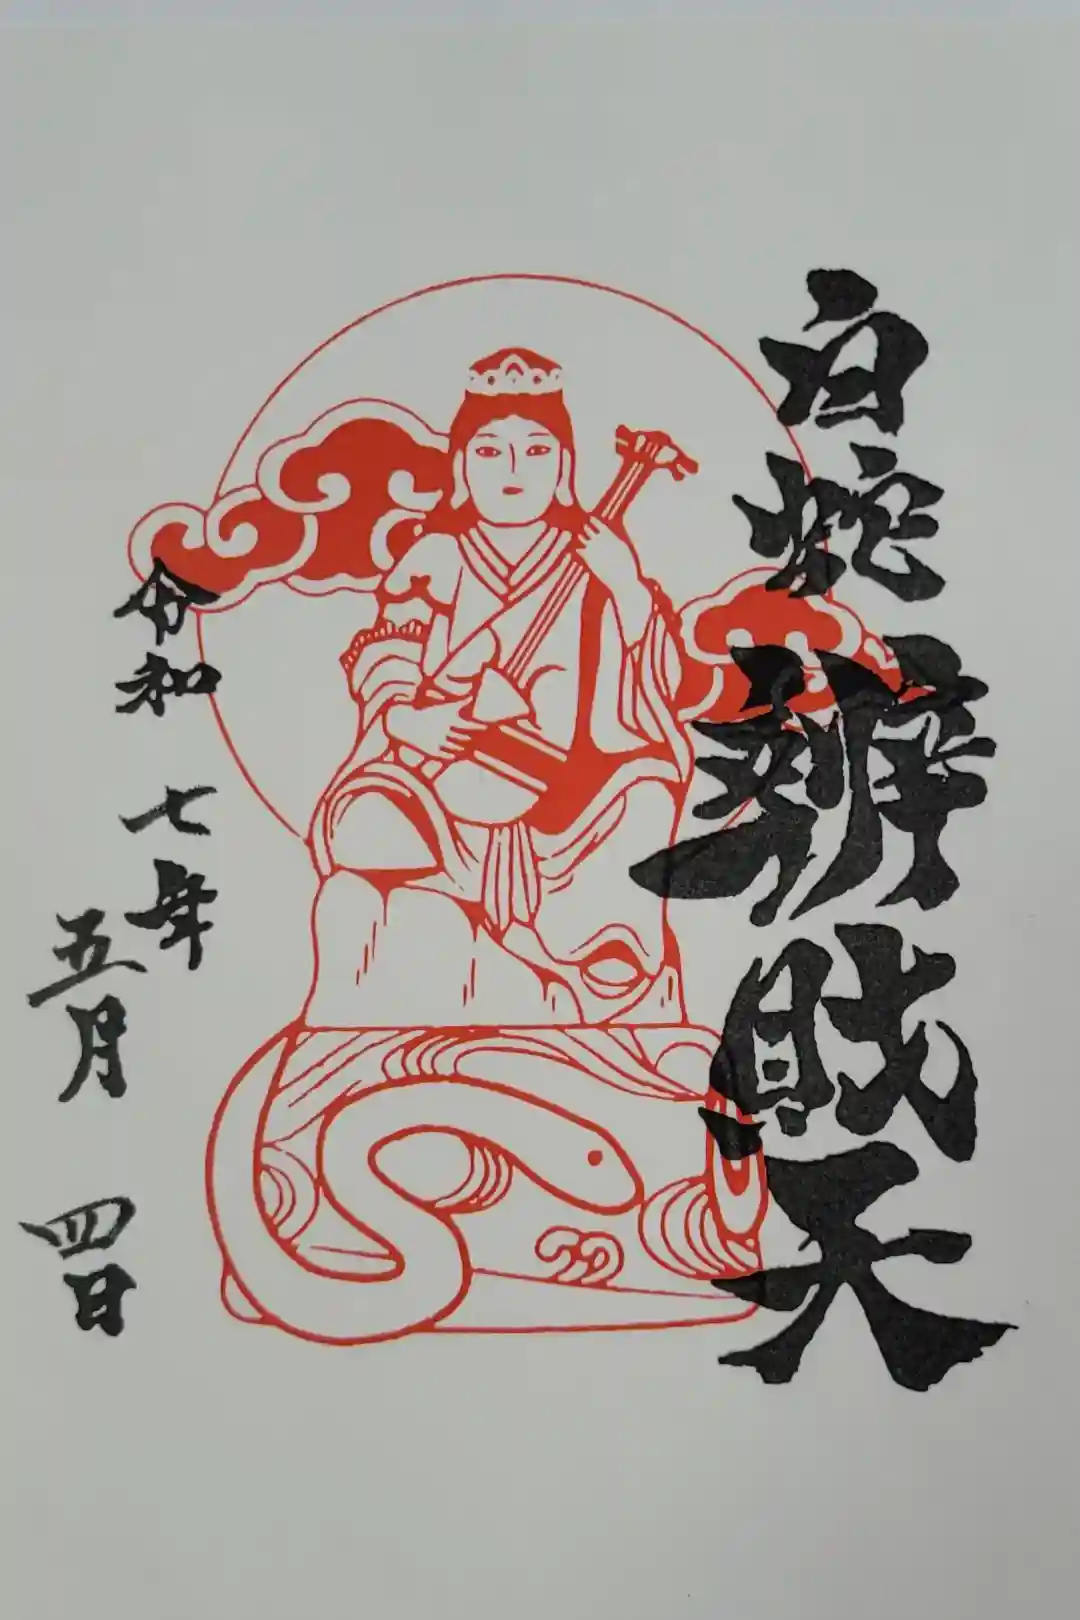 白蛇辨財天
令和七年
五月四日